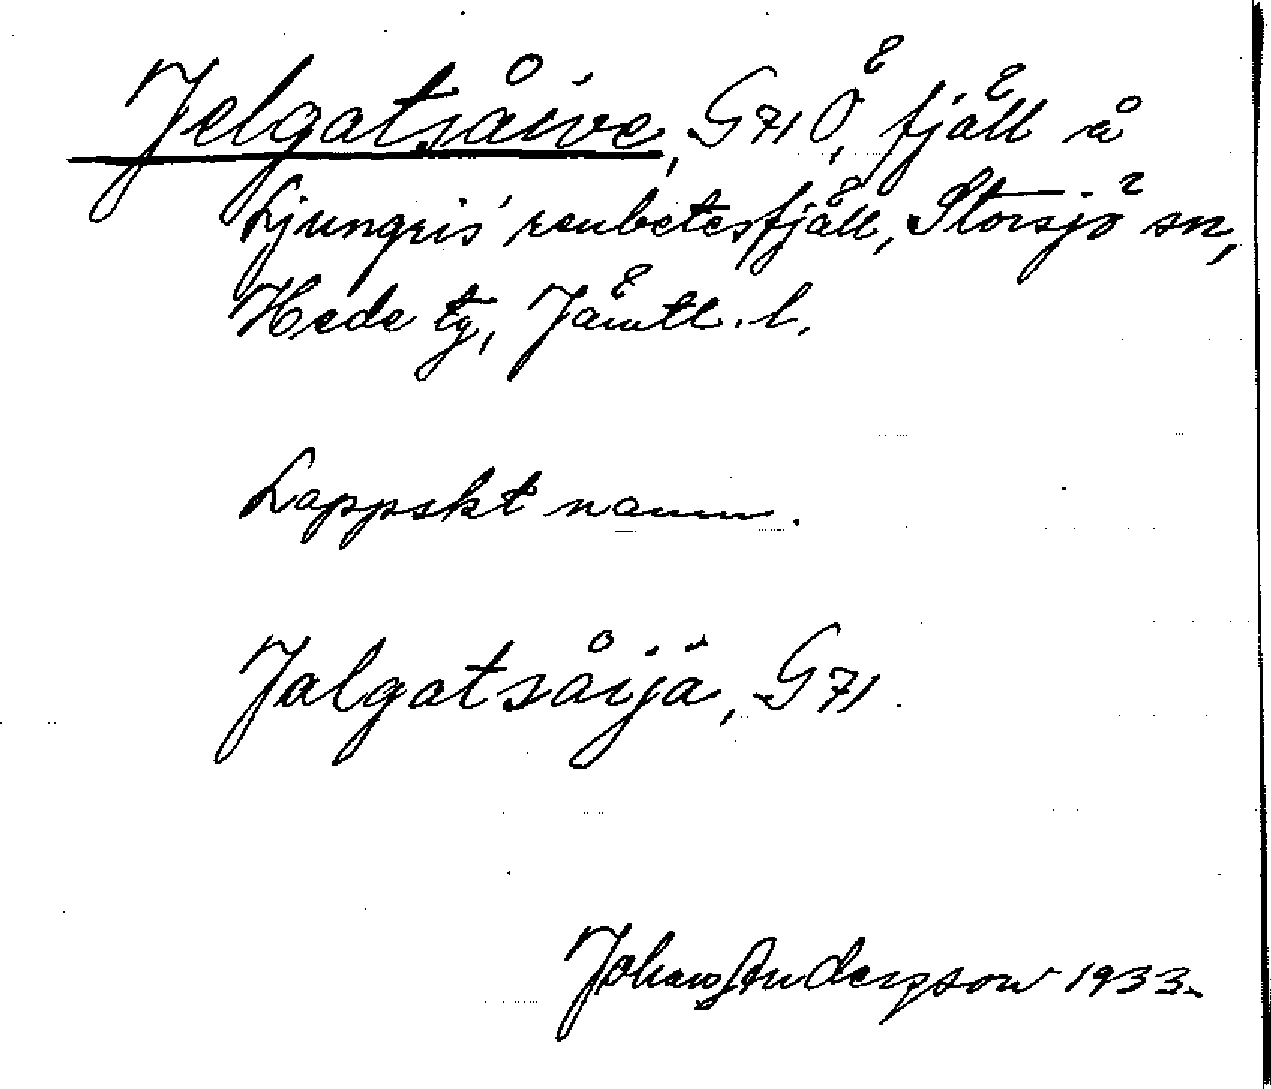 Jelgatsåive, G71Ö, fjäll å
Ljungris' renbetesfjäll, Storsjö sn,
Hede tg, Jämtl. l.
Lappskt namn.
Jalgatsåijä, G71.
Johans Andersson 1933.